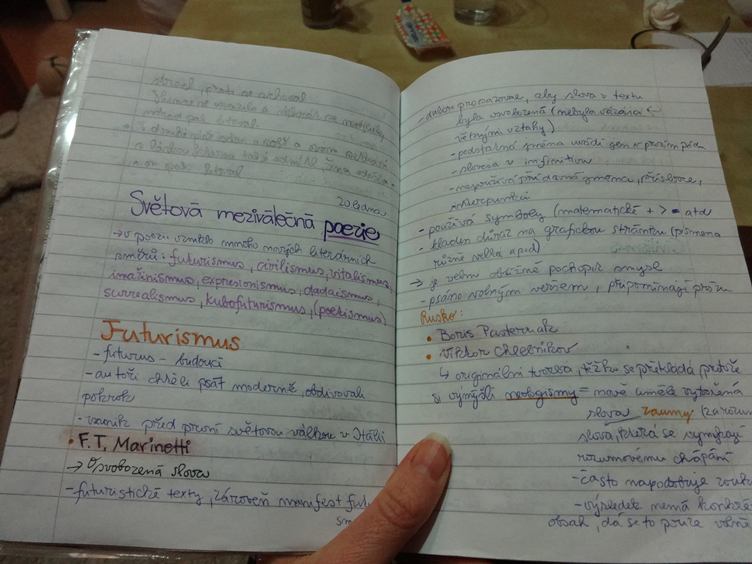 20. ledna
Světová meziválečná poezie
→ v poezii vzniklo mnoho nových literárních
směrů: futurismus, civilismus, vitalismus,
imažinismus, expresionismus, dadaismus,
surrealismus, kubofuturismus, (poetismus)
Futurismus
- futurus - budoucí
- autoři chtěli psát moderně, obdivovali
pokrok
- vznik před první světovou válkou v Itálii
• F. T. Marinetti
→ Osvobozená slova
- futuristické texty, zároveň manifest fut
sm
- dabou propaguje, aby slova v textu
byla osvobozená (nebyla vázána
větnými vztahy)
- podstatná jména uvádí jen v prvním pádu
- slovesa v infinitivu
- nepoužívá přídavná jména, příslovce,
interpunkci
- používá symboly (matematické + > = atd
- kladen důraz na grafickou stránku (písmena
různě velká apod)
→ je velmi obtížné pochopit smysl
- psáno volným veršem, připomínají prózu
Rusko:
• Boris Pasternak
• Viktor Chlebnikov
↳ originální tvorba, těžko se překládá protože
si vymýšlí neologismy = nově uměle vytvořená
slova zaumy
slova, která se vymykají
rozumovému chápání
- často napodobuje zvuk
- výsledek nemá konkré
obsah, dá se to pouze volně